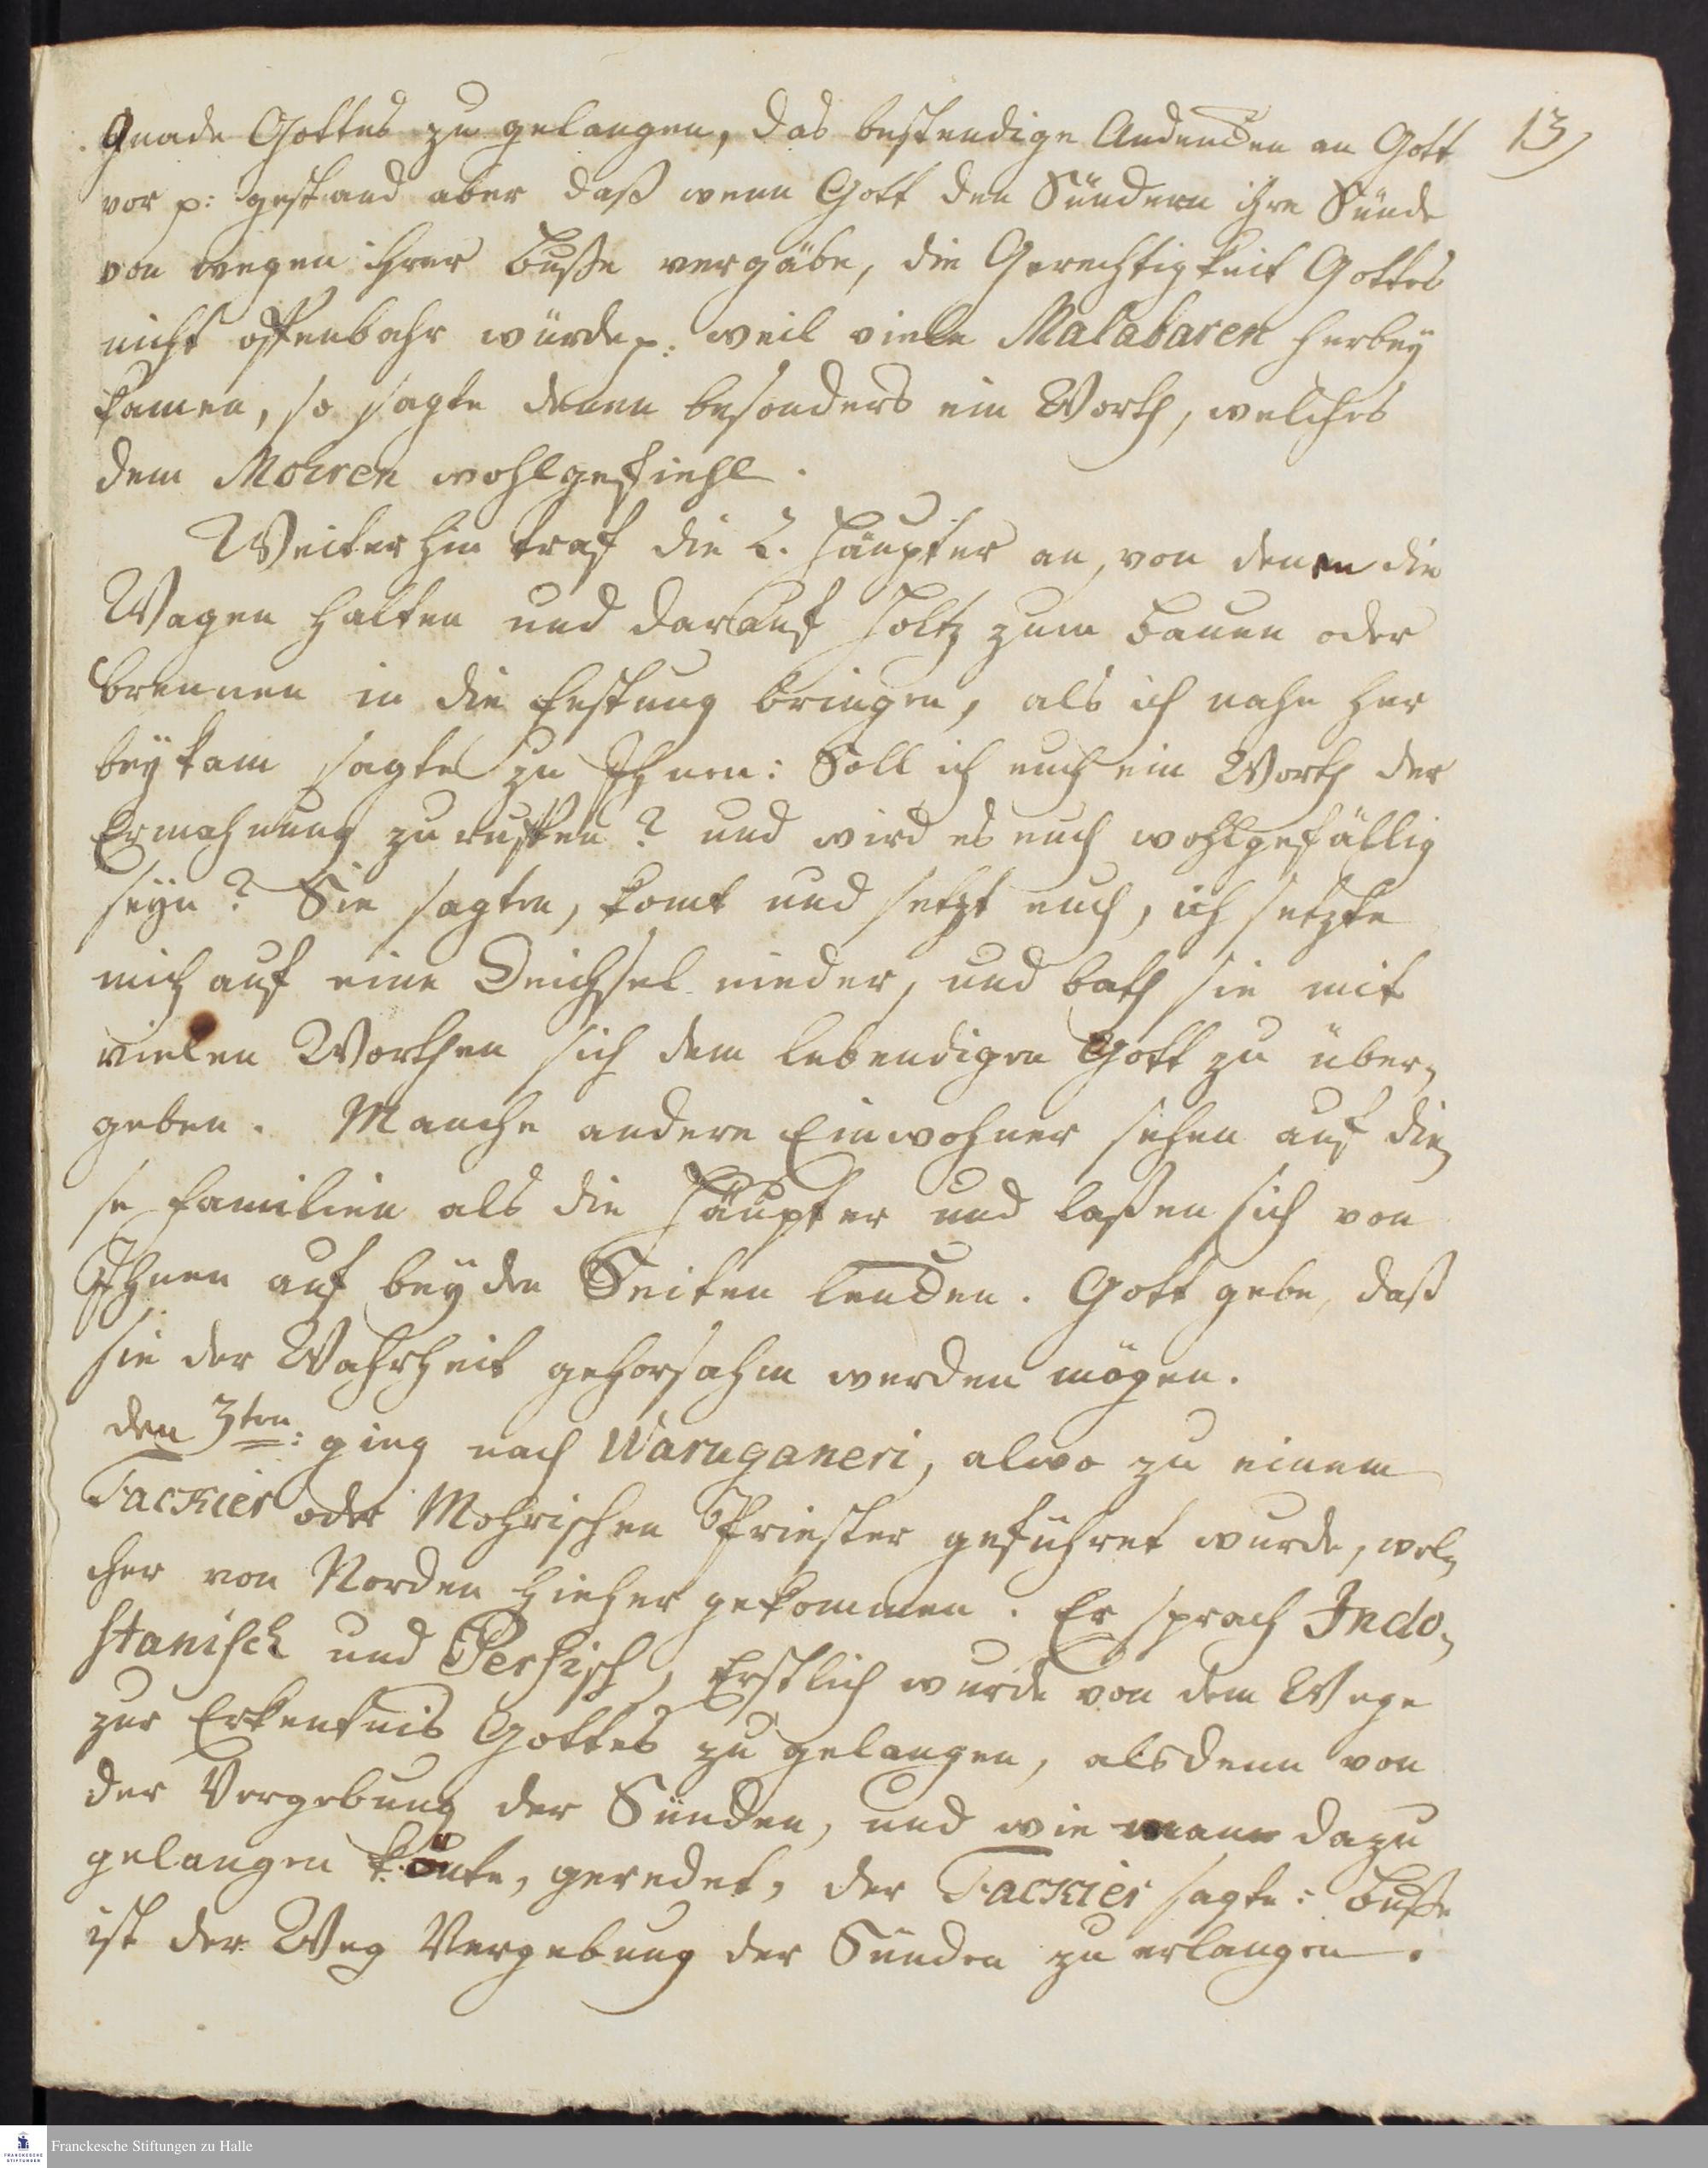 13)
Gnade Gottes zu gelangen, das bestendige Andencken an Gott
vor p: gestand aber daß wenn Gott den Sündern ihre Sünde
von wegen ihrer Buße vergäbe, die Gerechtigkeit Gottes
nicht offenbahr würde p: weil viele Malabaren herbey
kamen, so sagte denen besonders ein Worth, welches
dem Mohren wohlgefiehl.
Weiter hin traf die 2. Häupter an, von denen die
Wagen halten und darauf Holtz zum Bauen oder
brennen in die Festung bringen, als ich nahe her
bey kam sagte zu Ihnen: Soll ich euch ein Worth der
Ermahnung zu ruffen? und wird es euch wohlgefällig
seyn? Sie sagten, komt und setzt euch, ich setzte
mich auf eine Deichsel nieder, und bath sie mit
vielen Worthen sich dem lebendigen Gott zu über„
geben. Manche andere Einwohner sehen auf die„
se Familien als die Häupter und laßen sich von
Ihnen auf beyden Seiten lencken. Gott gebe, daß
sie der Wahrheit gehorsahm werden mögen.
den 3ten: ging nach Waruganeri, alwo zu einem
Fackier oder Mohrischen Priester geführet wurde, wel„
cher von Norden hieher gekommen. Er sprach Indo„
stanisch und Persisch, Erstlich wurde von dem Wege
zur Erkentnis Gottes zu gelangen, alsdenn von
der Vergebung der Sünden, und wie man dazu
gelangen könte, geredet, der Fackier sagte: Buße
ist der Weg Vergebung der Sünden zu erlangen.
Franckesche Stiftungen zu Halle